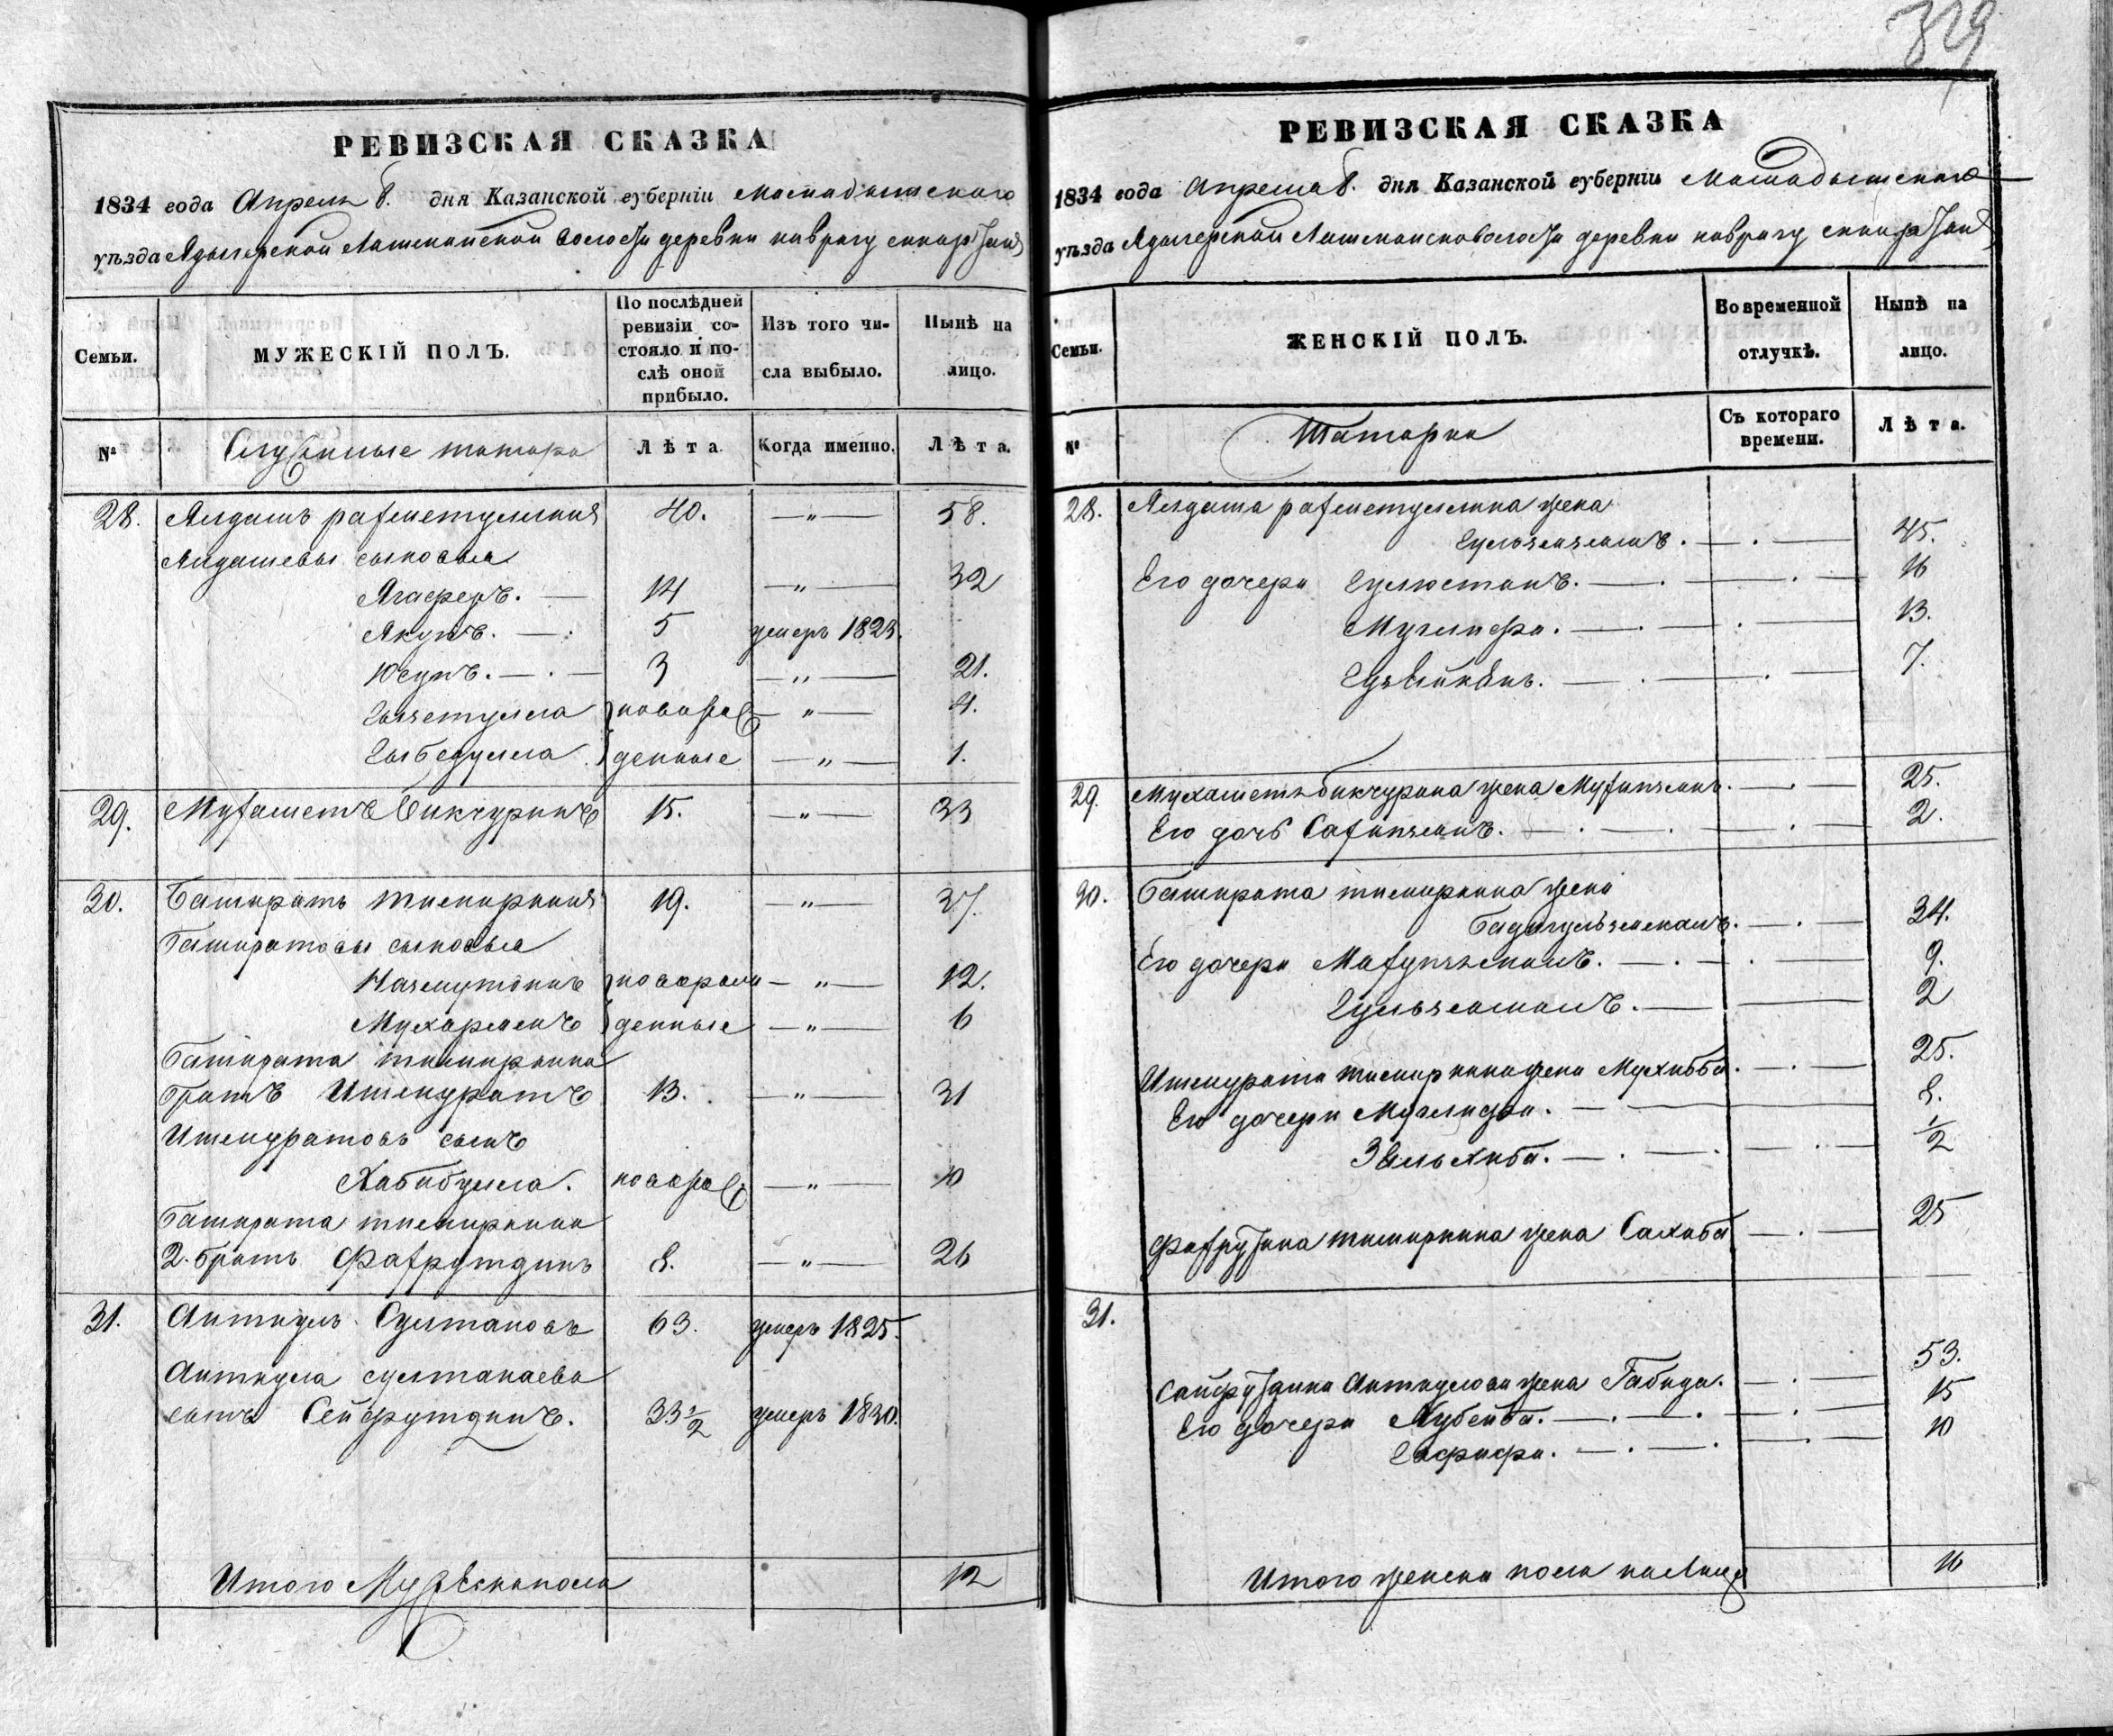 379
РЕВИЗСКАЯ СКАЗКА
1834 года Апреля 8. дня Казанской губерніи Мамадышскаго
уѣзда Адаевской Лашманской волости деревни
Семьи.
МУЖЕСКІЙ ПОЛЪ.
По послѣдней ревизіи состояло и послѣ оной прибыло.
Изъ того числа выбыло.
Нынѣ на лицо.
№
Служилые татара
Лѣта.
Когда именно.
Лѣта.
28. Алдашъ рахметуллинъ 40. —"— 58.
Алдашевы сыновья
Агаферъ. — 14 —"— 32
Якупъ. — 5 умеръ 1823.
Юсупъ. — 3 —"— 21.
Гызетулла новорож —"— 4.
Гыбедулла денные —"— 1.
29. Мухаметъ Бикчуринъ 15. —"— 33
30. Баширатъ тимиркинъ 19. —"— 37.
Башратовы сыновья
Назмутдинъ новорож —"— 12.
Мухарямъ денные —"— 6
Баширата тимиркина
братъ Ишмуратъ 13. —"— 31
Ишмуратовъ сынъ
Хабибулла. новорож —"— 10
Баширата тимиркина
2. братъ Фахрутдинъ 8. —"— 26
31. Аиткулъ Султановъ 63. умеръ 1825.
Аиткула султанаева
сынъ Сейфутдинъ. 33 1/2 умеръ 1830.
Итого Мужеска пола 12
РЕВИЗСКАЯ СКАЗКА
1834 года Апреля 8. дня Казанской губерніи Мамадышскаго
уѣзда Адаевской Лашманской волости деревни
Семьи.
ЖЕНСКІЙ ПОЛЪ.
Во временной отлучкѣ.
Нынѣ на лицо.
№
Татарки
Съ котораго времени.
Лѣта.
28. Алдаша рахметуллина жена
Гульзямалъ. — 45.
Его дочери Гулюстанъ. — 16
Муглифа. — 13.
— 7.
29. Мухаметъ бикчурина жена Мухипзянъ. — 25.
Его дочь Сахипзямъ. — 2.
30. Баширата тимиркина жена
Бадигульземалъ. — 34.
Его дочери Махупземалъ. — 9.
Гульземалъ. — 2
Ишмурата тимиркина жена Мухибба. — 25.
Его дочери Муглифа. — 8.
Зюльхиба. — 1/2
Фахрутдина тимиркина жена Сахиба — 25
31.
Сайфутдина Аиткулова жена Габида. — 53.
Его дочери Хубейба. — 15
Гафифа. — 10
Итого женска пола на лицо 16